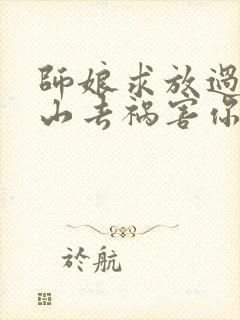 師娘求放過
山去禍害你
於航